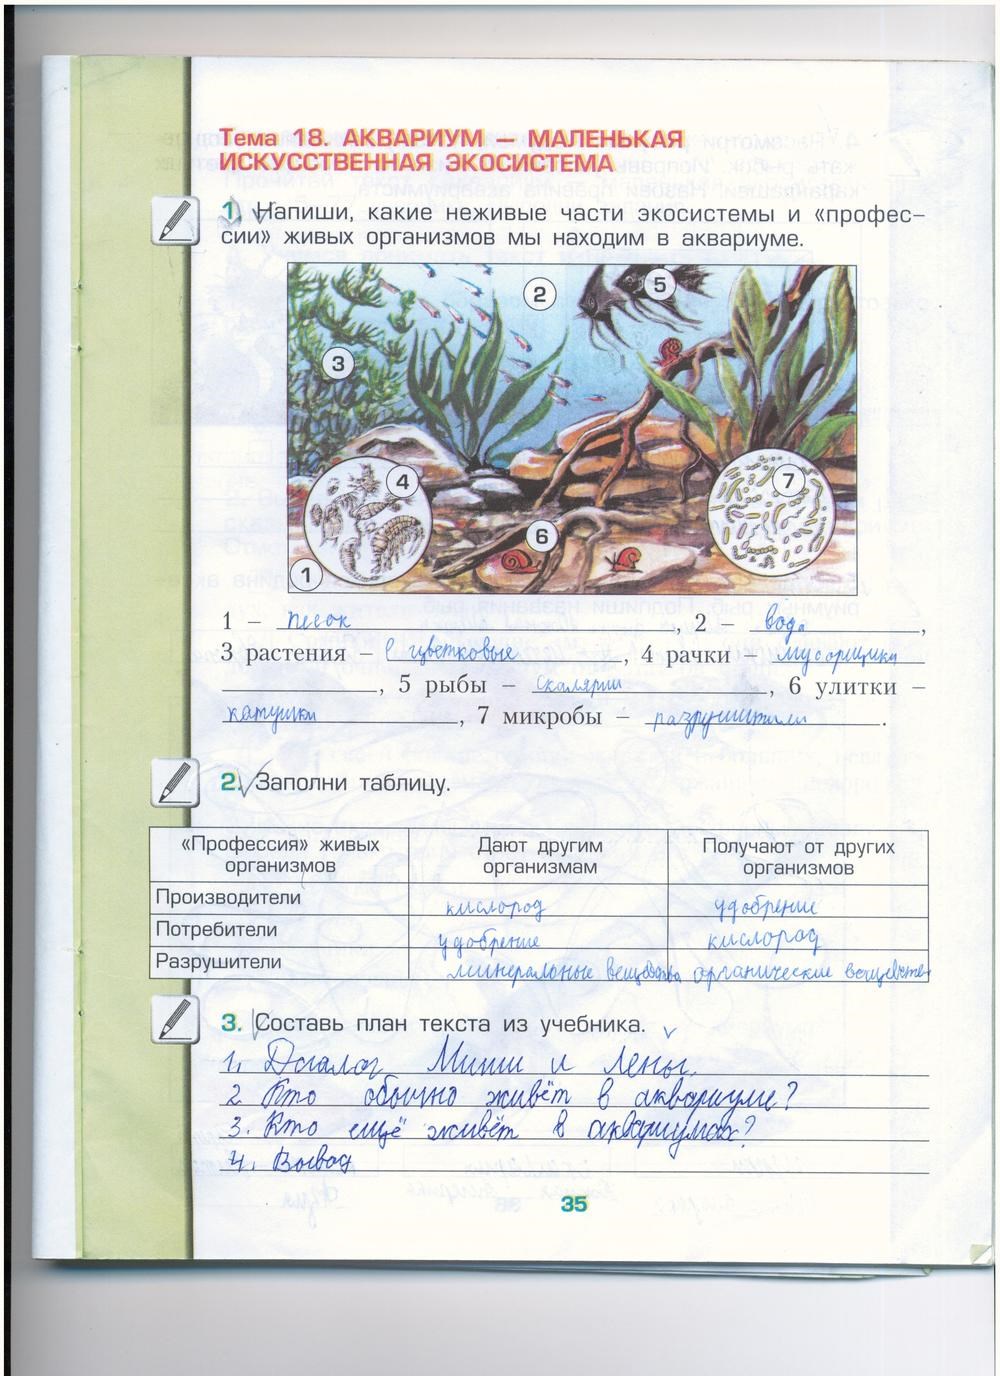 Тема 18. АКВАРИУМ – МАЛЕНЬКАЯ
ИСКУССТВЕННАЯ ЭКОСИСТЕМА
1. Напиши, какие неживые части экосистемы и «профес-
сии» живых организмов мы находим в аквариуме.
2
5
3
4
7
6
1
1 – песок, 2 – вода,
3 растения – цветковые, 4 рачки – мусорщики
, 5 рыбы – скалярии, 6 улитки –
катушки, 7 микробы – разрушители.
2. Заполни таблицу.
«Профессия» живых организмов Дают другим организмам Получают от других организмов
Производители кислород удобрение
Потребители удобрение кислород
Разрушители минеральные вещества органические вещества
3. Составь план текста из учебника.
1. Диалог Миши и Лены.
2 Кто обычно живёт в аквариуме?
3. Кто ещё живёт в аквариумах?
4. Вывод
35